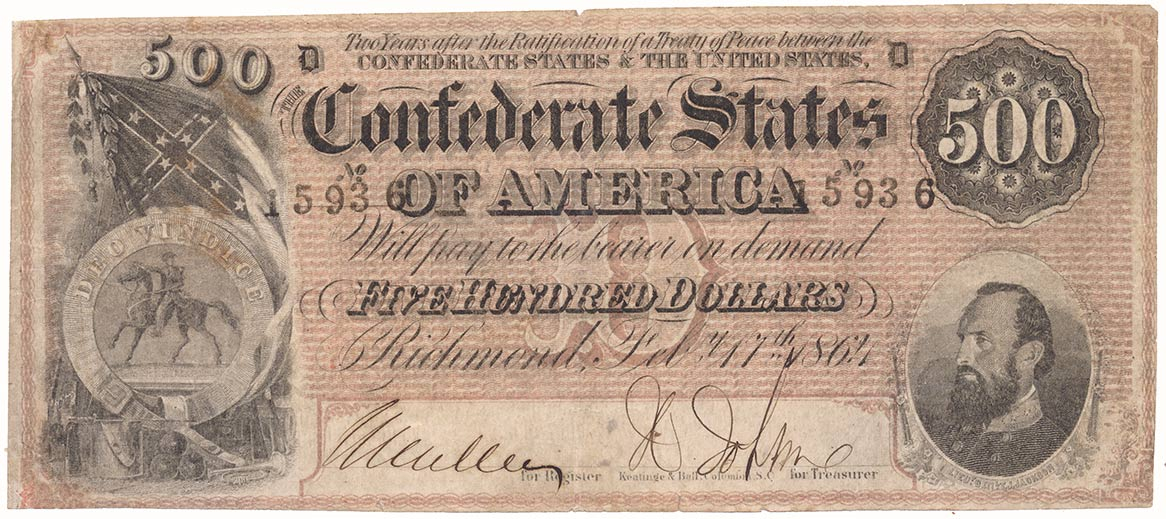 500
D
Two Years after the Ratification of a Treaty of Peace between the
D
CONFEDERATE STATES & THE UNITED STATES,
THE
Confederate States
500
No 15936
OF AMERICA
No 15936
DEO VINDICE
Will pay to the bearer on demand
FIVE HUNDRED DOLLARS
Richmond, Feby 17th 1864
D
for Register
Keatinge & Ball, Columbia, S.C.
for Treasurer